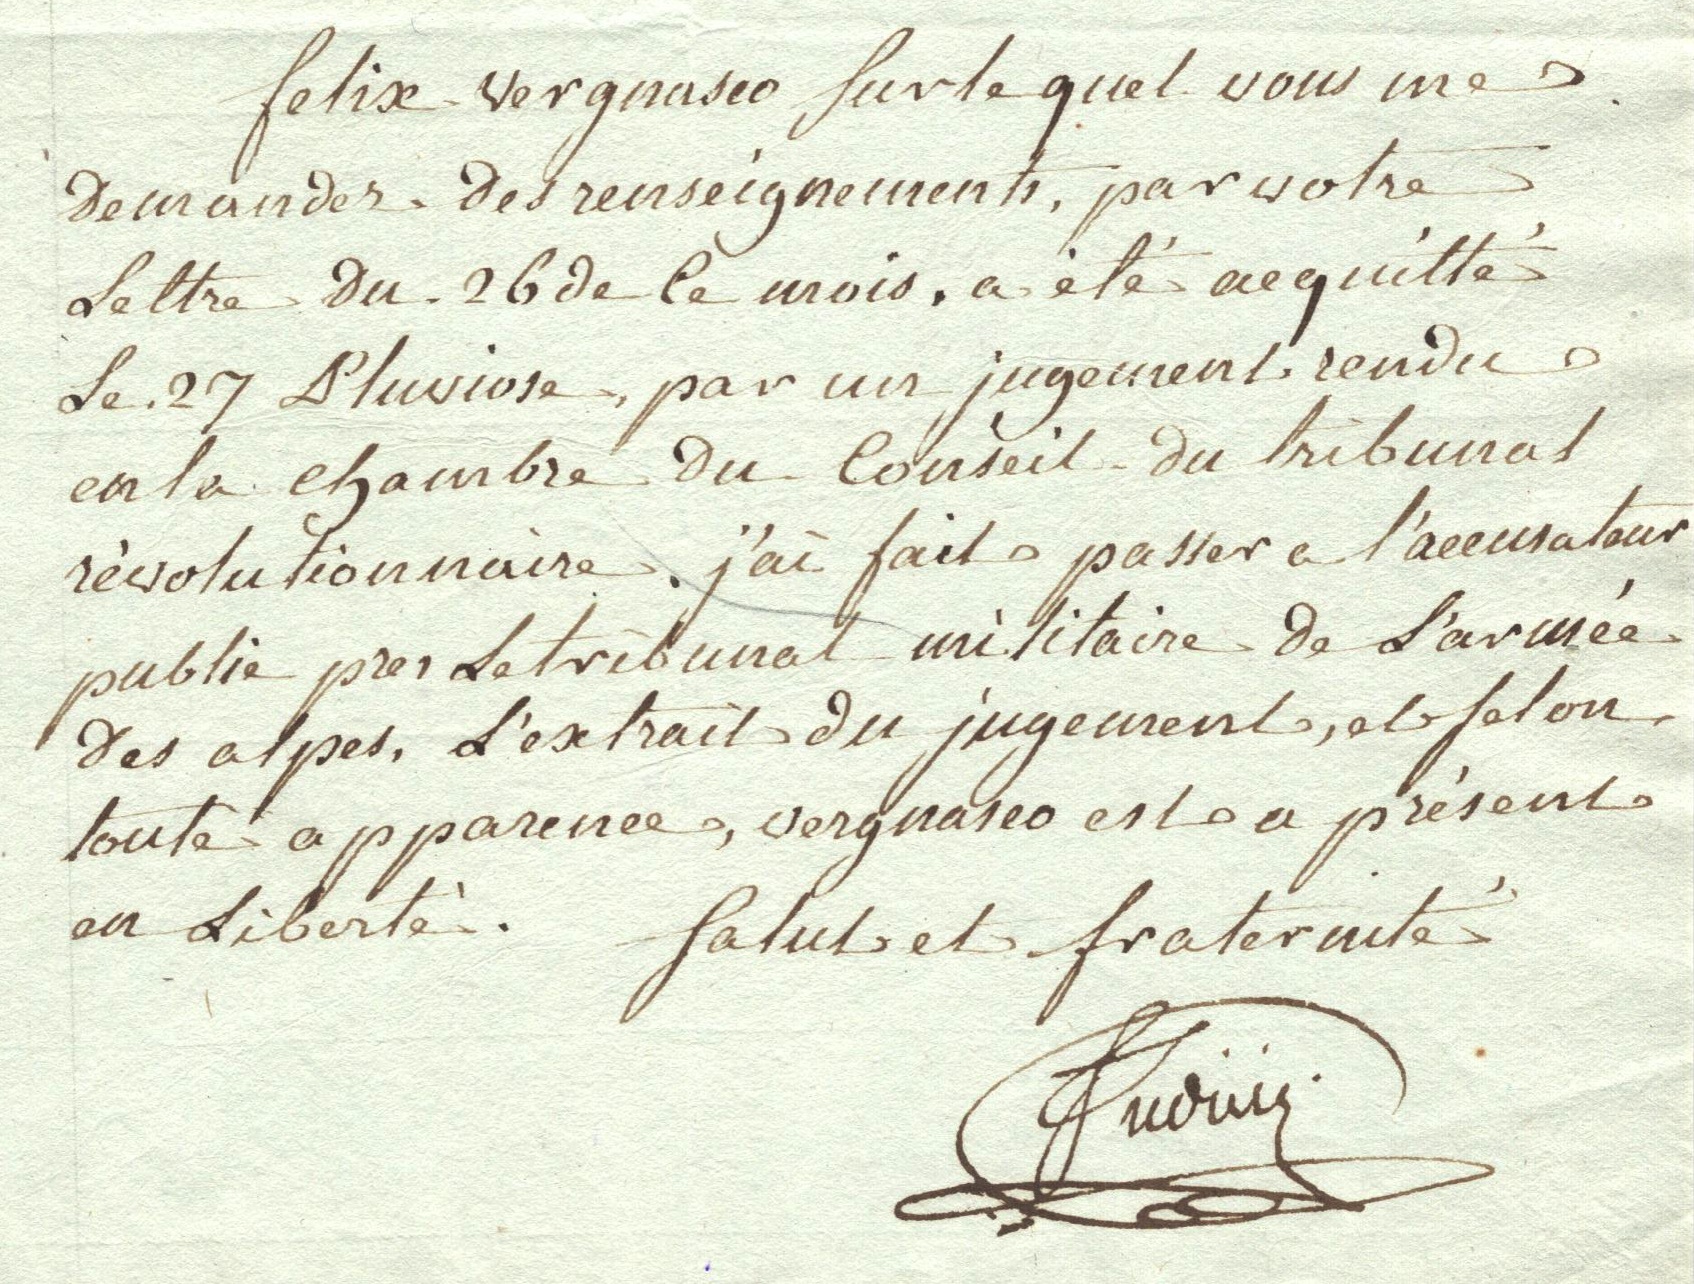 felix vergnasco sur le quel vous me
demandez des renseignements, par votre
Lettre du 26 de ce mois, a été acquitté
Le 27 Pluviose, par un jugement rendu
en la chambre du Conseil du tribunal
révolutionnaire. j'ai fait passer a l'accusateur
public pres Le tribunal militaire de L'armée
des alpes, L'extrait du jugement, et selon
toute apparence, vergnasco est a présent
en Liberté. Salut et fraternité